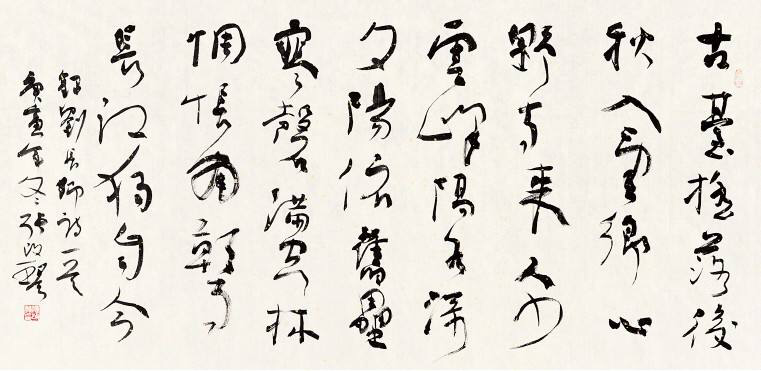 古臺搖落後
秋入望鄉心
野寺來人少
雲峰隔水深
夕陽依舊壘
寒磬滿空林
惆悵南朝事
長江獨自今
錄劉長卿詩一首
庚寅年冬張改琴